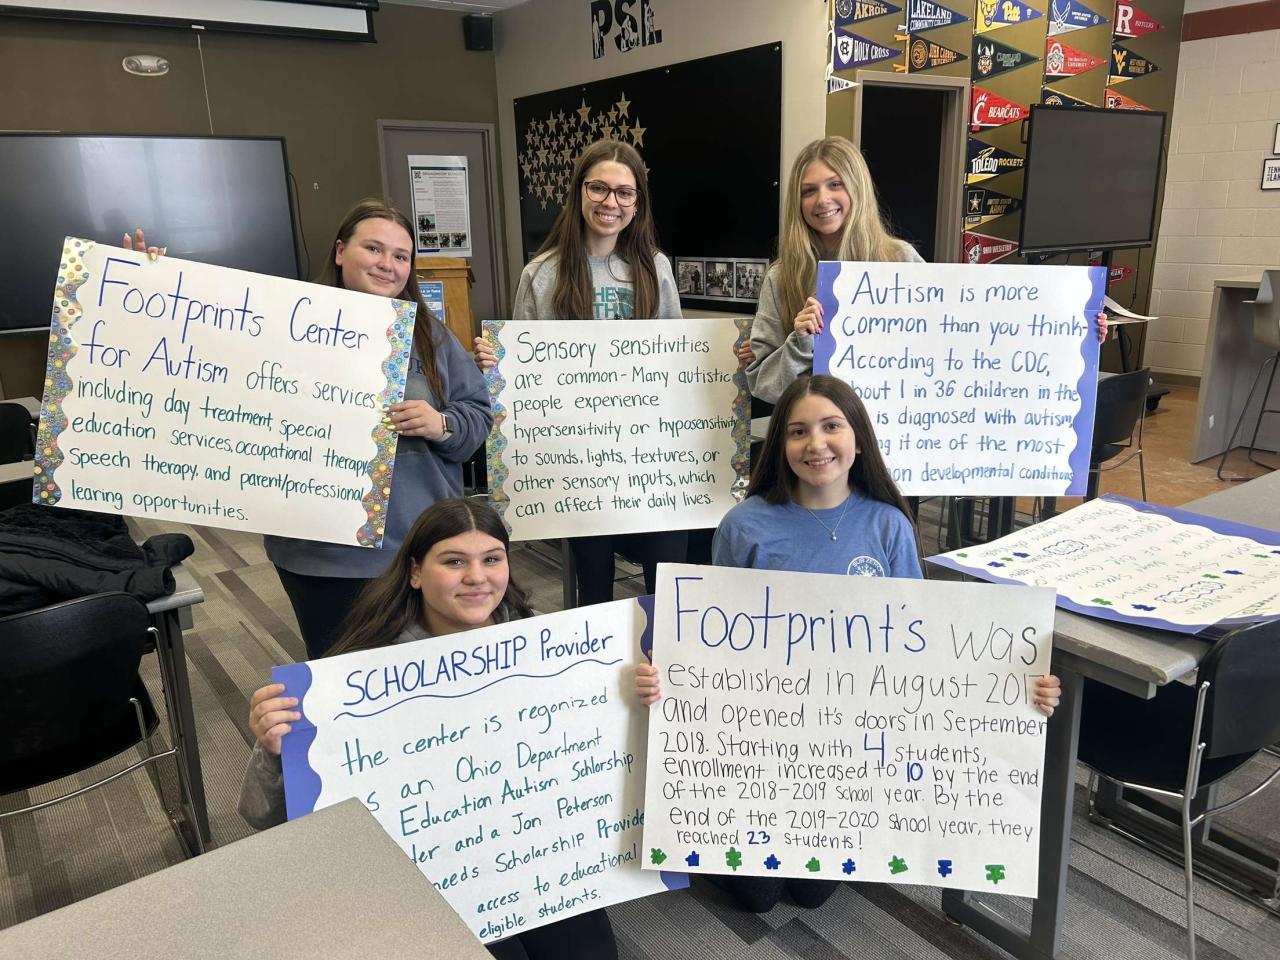 PSL
AKRON
LAKELAND
COMMUNITY COLLEGE
Pitt
R
RUTGERS
HOLY CROSS
JOHN CARROLL
UNIVERSITY
CLEVELAND
BEARCATS
TOLEDO ROCKETS
ARMY
OHIO WESLEYAN
Footprints Center
for Autism offers services
including day treatment, special
education services, occupational therapy,
speech therapy, and parent/professional
learing opportunities.
Sensory sensitivities
are common - Many autistic
people experience
hypersensitivity or hyposensitivity
to sounds, lights, textures, or
other sensory inputs, which
can affect their daily lives.
Autism is more
common than you think-
According to the CDC,
about 1 in 36 children in the
is diagnosed with autism,
it one of the most
developmental conditions
SCHOLARSHIP Provider
the center is regonized
s an Ohio Department
Education Autism Schlorship
and a Jon Peterson
needs Scholarship Provide
access to educational
eligible students.
Footprint's was
established in August 2017
and opened it's doors in September
2018. Starting with 4 students,
enrollment increased to 10 by the end
of the 2018-2019 school year. By the
end of the 2019-2020 shool year, they
reached 23 students!